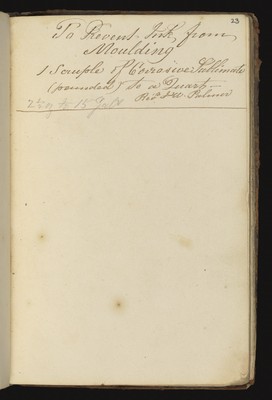 23
To Prevent Ink, from
Moulding
1 Scruple of Corrosive Sublimate
(pounded) to a Quart—
Palmer